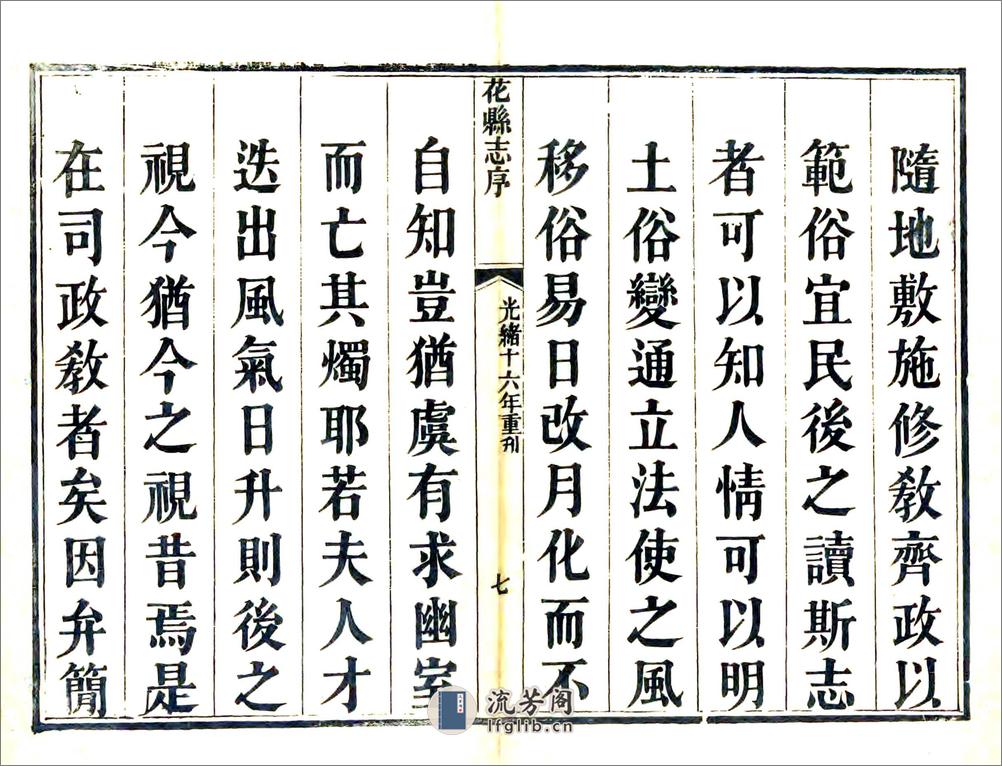 隨地敷施修教齊政以
範俗宜民後之讀斯志
者可以知人情可以明
土俗變通立法使之風
移俗易日改月化而不
花縣志序
光緒十六年重刋
七
自知豈猶虞有求幽室
而亡其燭耶若夫人才
迭出風氣日升則後之
視今猶今之視昔焉是
在司政教者矣因弁簡
流芳阁
lfglib.cn